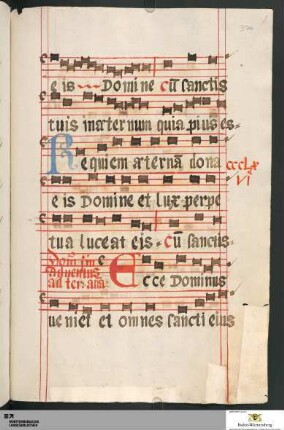 e is Domine cū sanctis
tuis in æternum quia pius es.
Requiem æternā dona
ccclx
vi
e is Domine et lux perpe
tua luceat eis. Cū sanctis.
Adventus
Ecce Dominus
veniet et omnes sancti eius
Baden-Württemberg